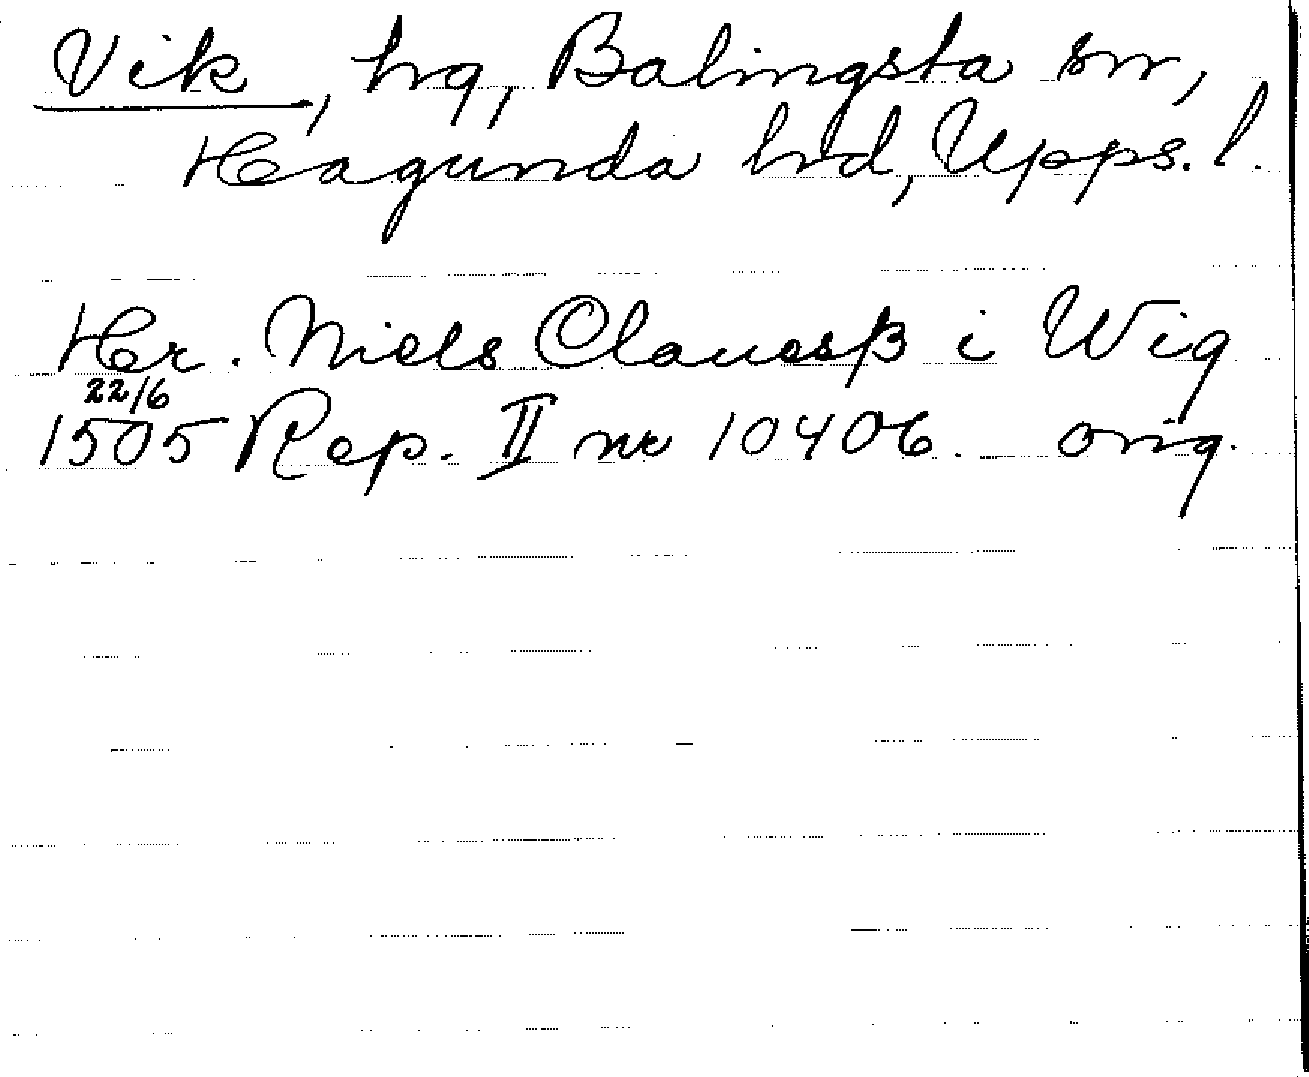 Vik, hrg, Balingsta sn,
Hagunda hrd, Upps. l.
Her. Niels Clauesß i Wig
22/6
1505 Rep. II nr 10406. orig.